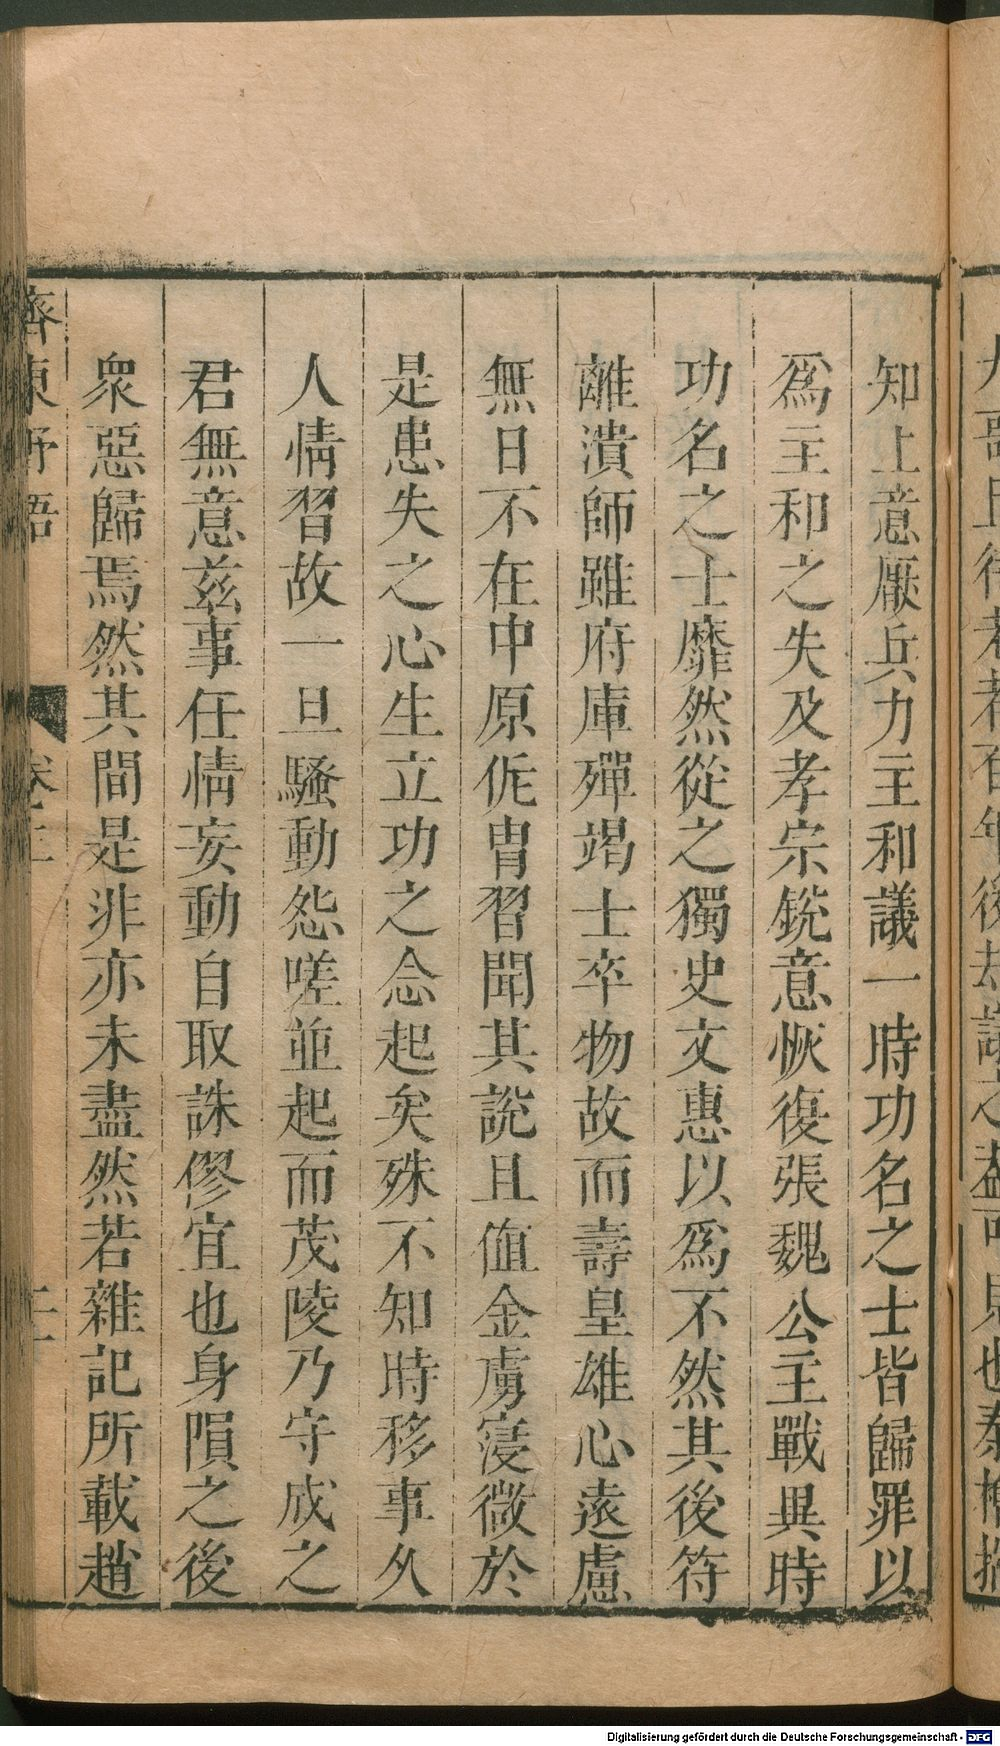 知上意厭兵力主和議一時功名之士皆歸罪以
爲主和之失及孝宗銳意恢復張魏公主戰異時
功名之士靡然從之獨史文惠以爲不然其後符
離潰師雖府庫殫竭士卒物故而壽皇雄心遠慮
無日不在中原侂胄習聞其說且値金虜寖微於
是患失之心生立功之念起矣殊不知時移事久
人情習故一旦騷動怨嗟並起而茂陵乃守成之
君無意玆事任情妄動自取誅僇宜也身隕之後
衆惡歸焉然其間是非亦未盡然若雜記所載趙
齊東野語
Digitalisierung gefördert durch die Deutsche Forschungsgemeinschaft - DFG